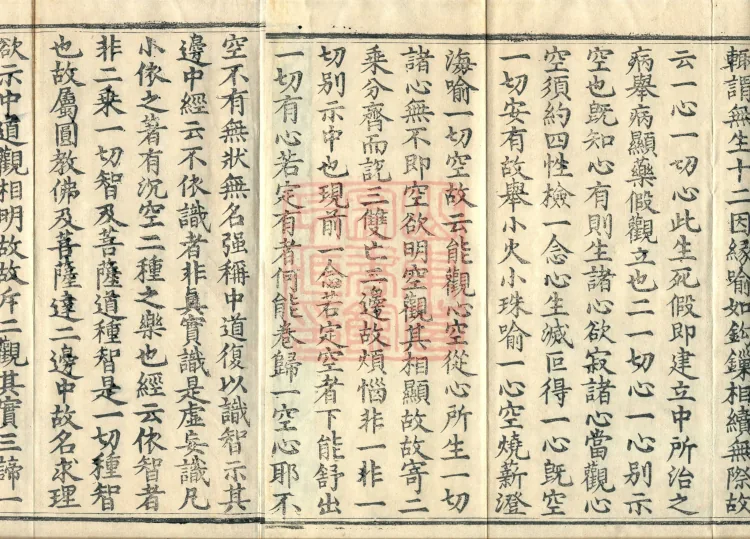 輞謂無生十二因緣喻如鉤鏁相續無際故
云一心一切心此生死假即建立中所治之
病舉病顯藥假觀立也二一切心一心別示
空也旣知心有則生諸心欲寂諸心當觀心
空須約四性檢一念心生滅叵得一心旣空
一切安有故舉小火小珠喻一心空燒薪澄
海喻一切空故云能觀心空從心所生一切
諸心無不即空欲明空觀其相顯故故寄二
乘分齊而說三雙亡二邊故煩惱非一非一
切別示中也現前一念若定空者下能舒出
一切有心若定有者何能卷歸一空心耶不
空不有無狀無名强稱中道復以識智示其
邊中經云不依識者非眞實識是虛妄識凡
小依之著有沉空二種之樂也經云依智者
非二乘一切智及菩薩道種智是一切種智
也故屬圓教佛及菩薩達二邊中故名求理
欲示中道觀相明故故斥二觀其實三諦一